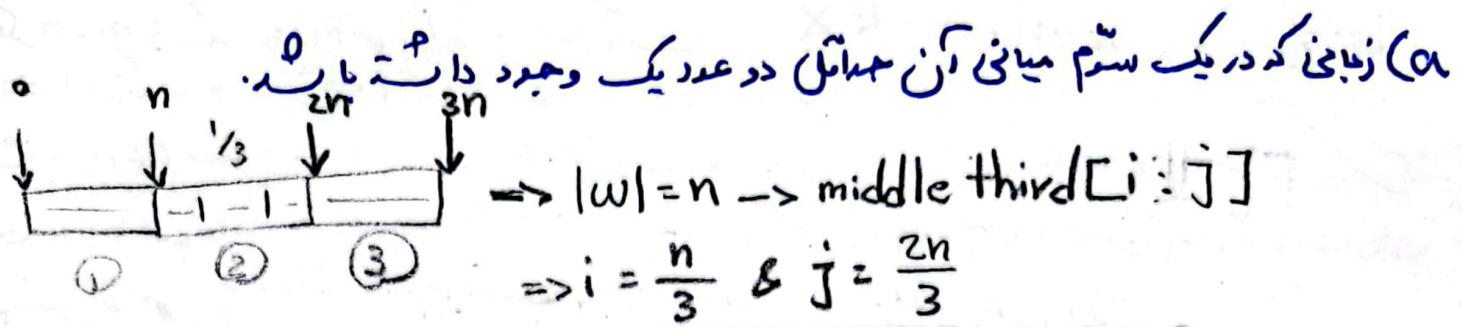 a) زبانی که در یک سوم میانی آن حداقل دو عدد یک وجود داشته باشد.
0 n 1/3 2n 3n
- 1 - 1 -
① ② ③
=> |w| = n -> middle third [i : j]
=> i = n/3 & j = 2n/3